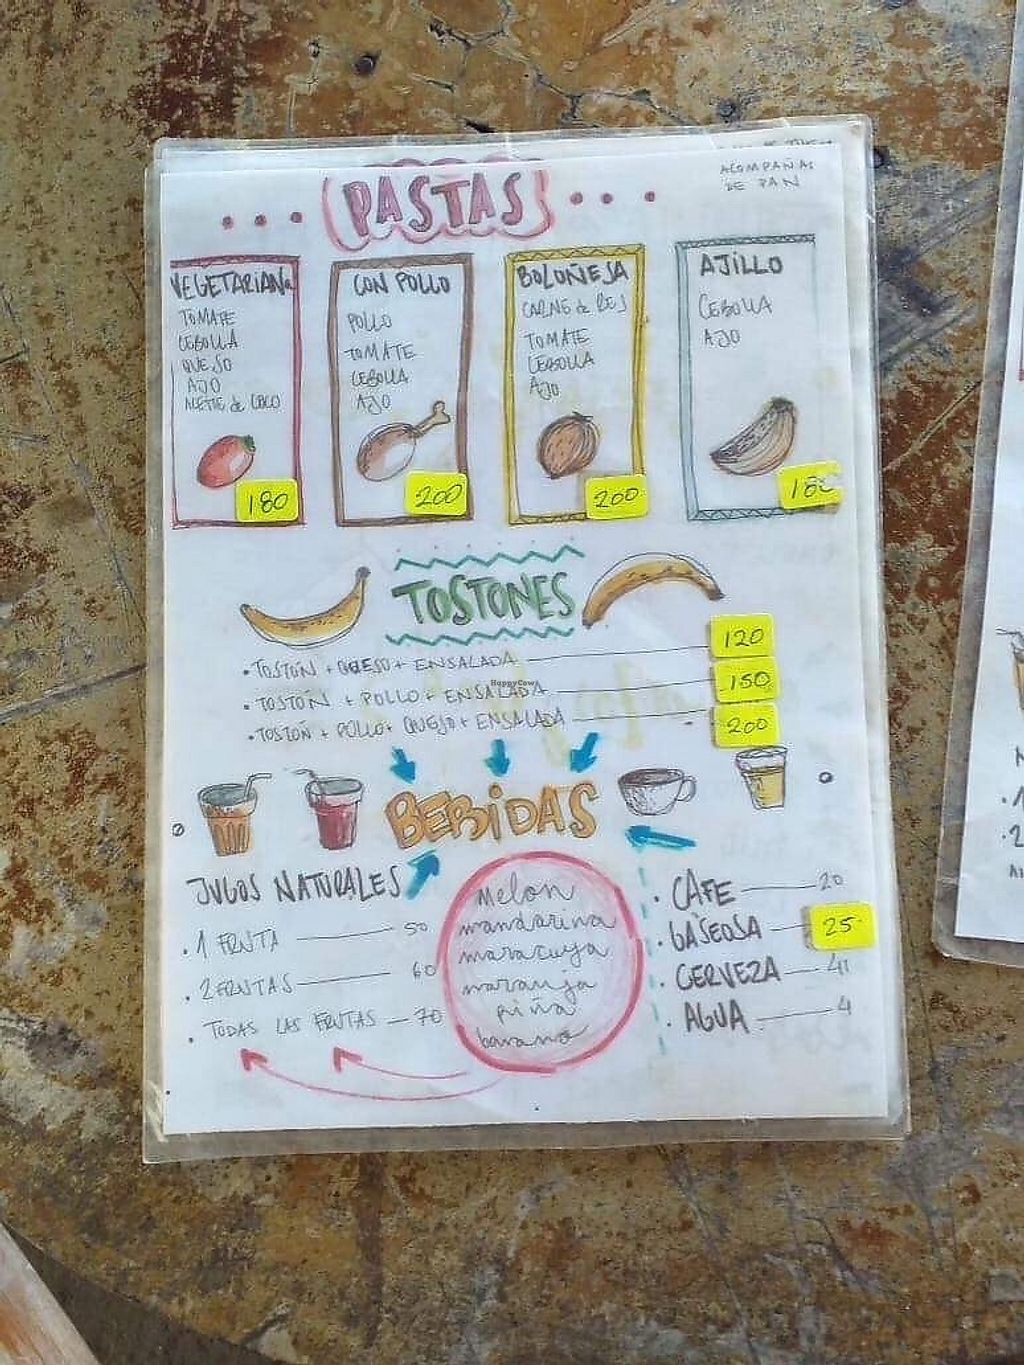 ACOMPAÑAS
DE PAN
PASTAS
VEGETARIANA
TOMATE
CEBOLLA
QUESO
AJO
ACEITE de COCO
180
CON POLLO
POLLO
TOMATE
CEBOLLA
AJO
200
BOLOÑESA
CARNE de RES
TOMATE
CEBOLLA
AJO
200
AJILLO
CEBOLLA
AJO
TOSTONES
• TOSTÓN + QUESO + ENSALADA 120
• TOSTÓN + POLLO + ENSALADA 150
• TOSTÓN + POLLO + QUESO + ENSALADA 200
HappyCow
BEBIDAS
JUGOS NATURALES
• 1 FRUTA 50
• 2 FRUTAS 60
• TODAS LAS FRUTAS 70
Melon
mandarina
maracuya
naranja
piña
banano
• CAFE 20
• GASEOSA 25
• CERVEZA
• AGUA